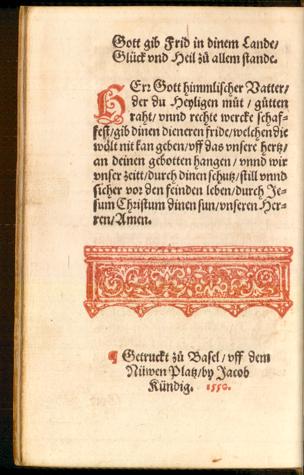 Gott gib Frid in dinem Lande/
Glück vnd Heil zů allem stande.
HErꝛ Gott himmlischer Vatter/
der du Heyligen můt / gůtten
raht/ vnnd rechte wercke schaf-
fest/gib dinen dieneren fride/welchen die
wält nit kan geben/vff das vnsere hertz/
an deinen gebotten hangen/ vnnd wir
vnser zeitt/durch dinen schutz/still vnnd
sicher voꝛ den feinden leben/durch Je-
sum Chꝛistum dinen sun/vnseren Her-
ren/Amen.
¶ Getruckt zů Basel/ vff dem
Nüwen Platz/by Jacob
Kündig. 1550.